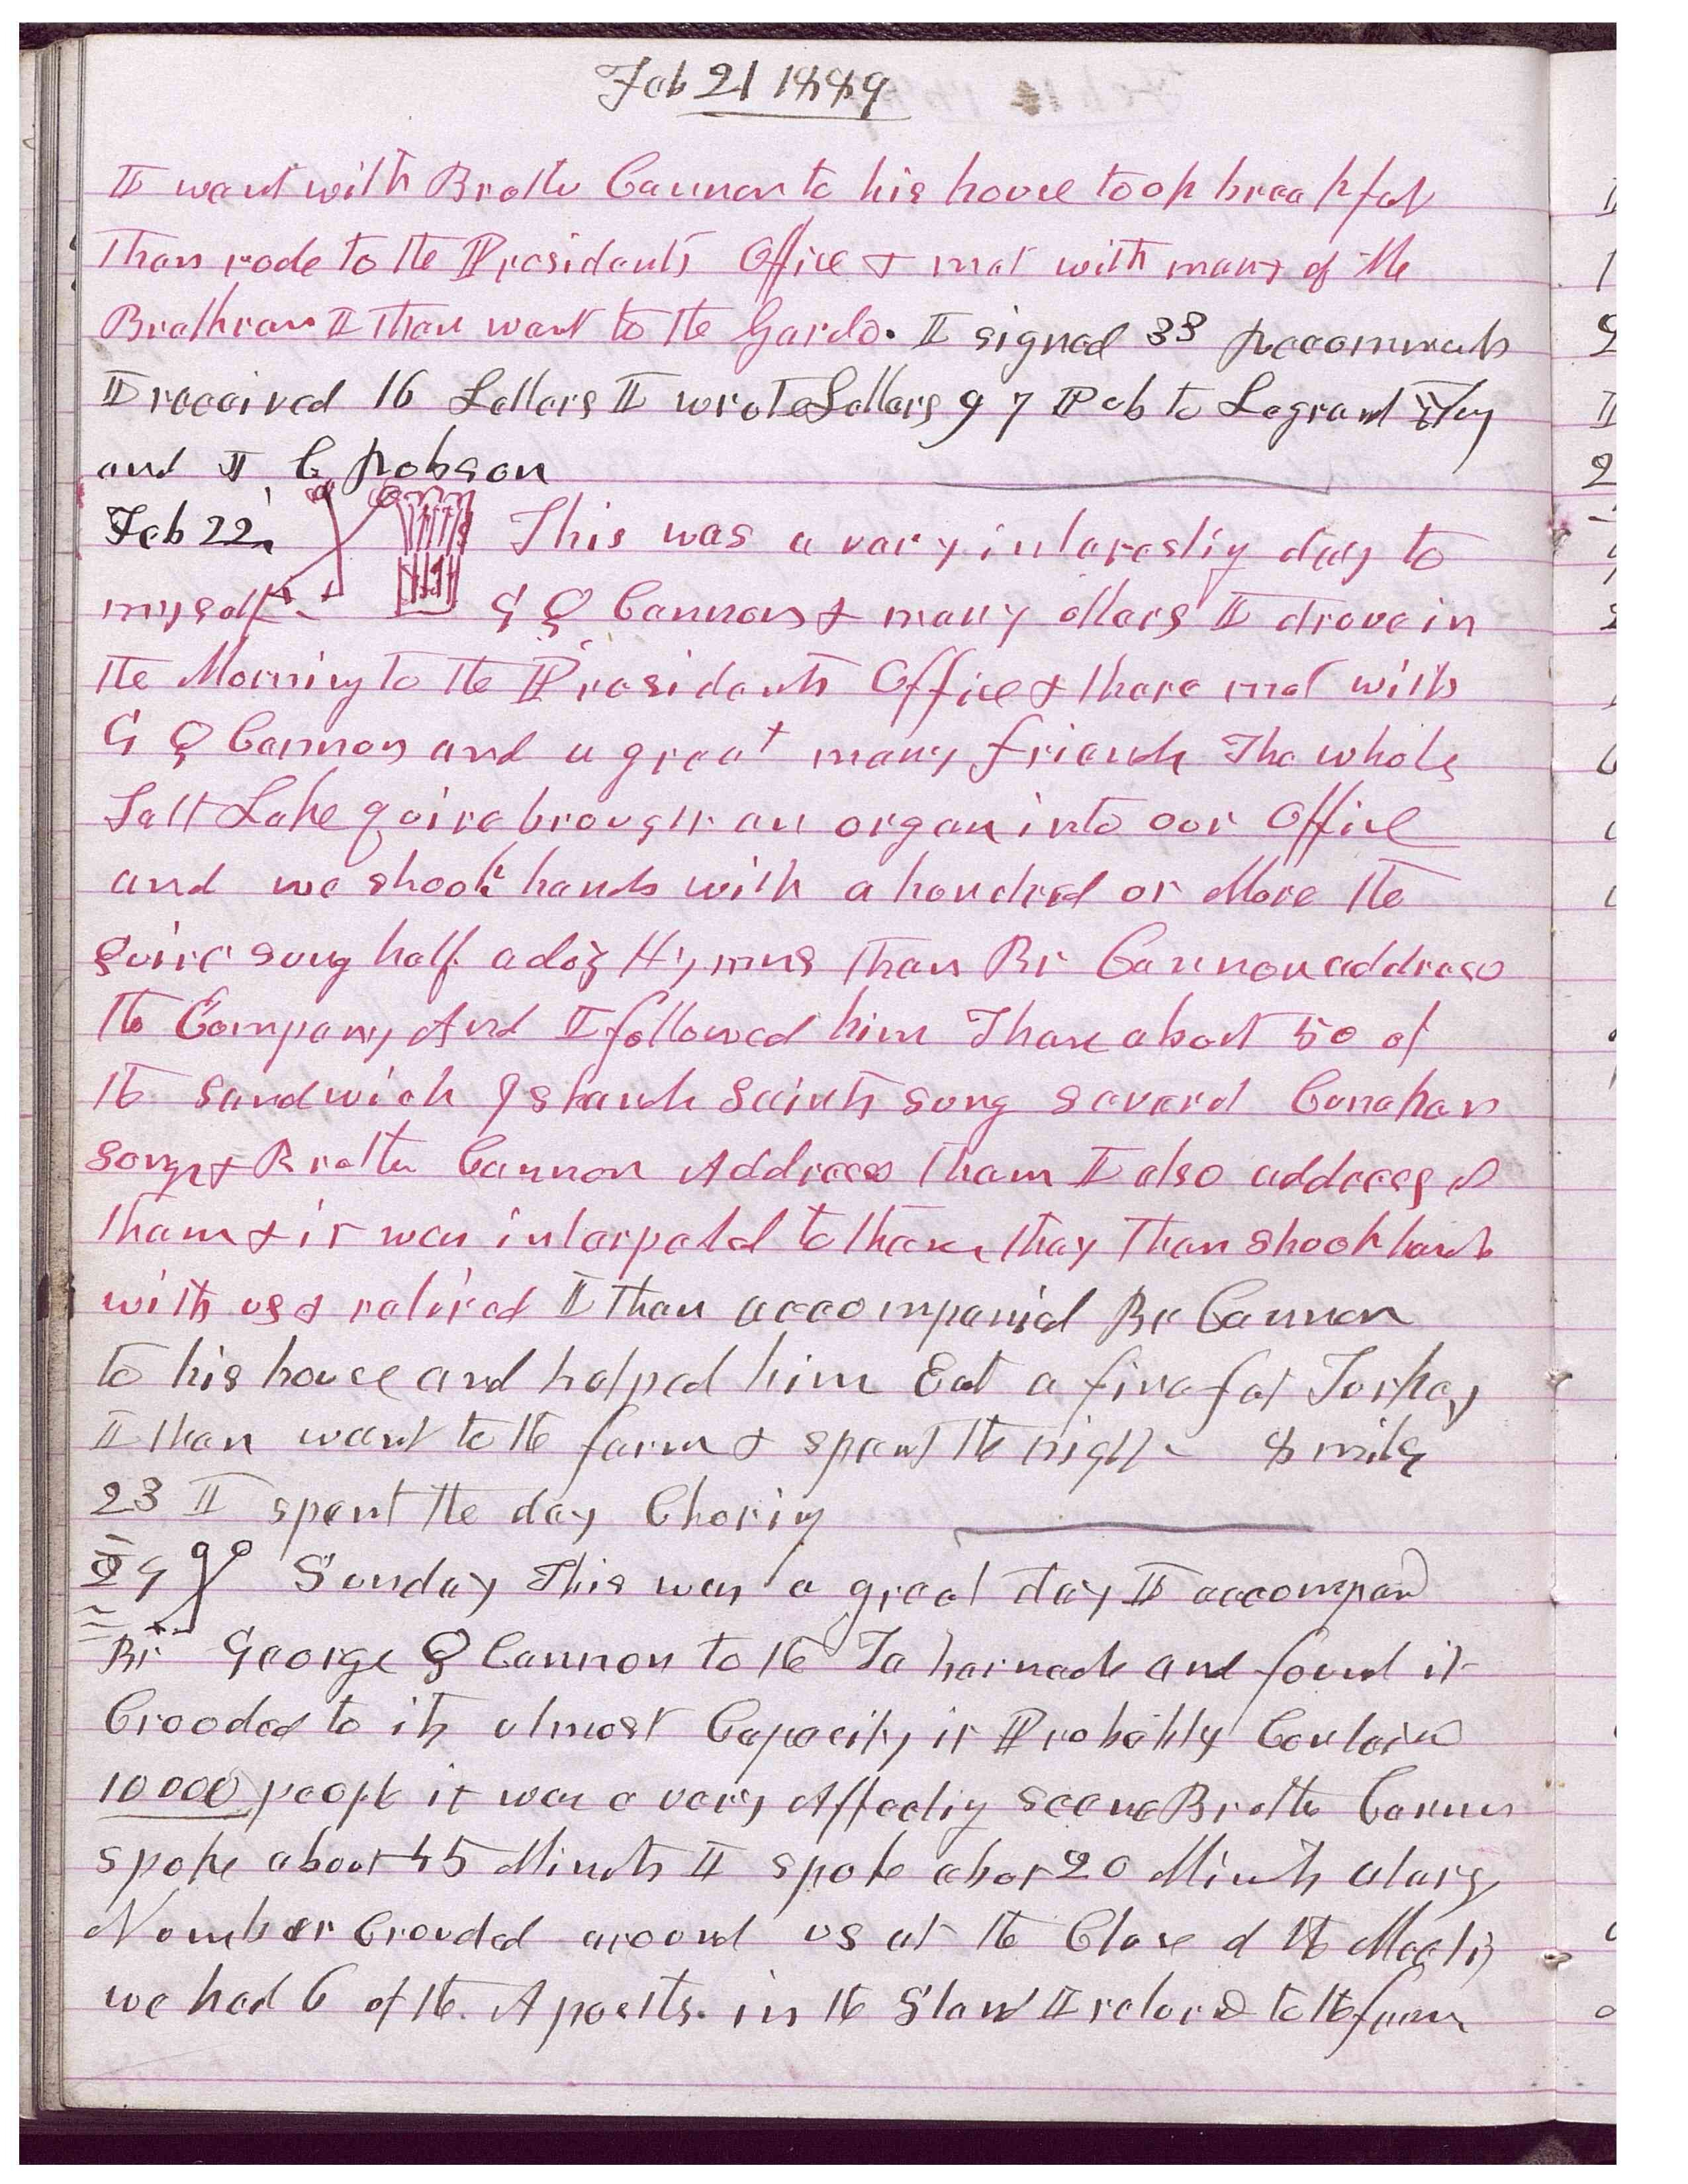 Feb 21 1889
I went with Brother Cannon to his house took breakfast
then rode to the Presidents Office & met with many of the
Brethren I then went to the Gardo. I signed 33 Recommends
I received 16 Letters I wrote Letters 97 Pub to Legrand Young
and I C Robson
Feb 22. This was a very interesting day to
myself G Q Cannon & many others I drove in
the Morning to the Presidents Office & there met with
G Q Cannon and a great many friends The whole
Salt Lake quire brought an organ into our Office
and we shook hands with a hundred or More the
quire sung half a doz Hymns then Br Cannon address
the Company And I followed him Then about 50 of
the Sandwich Islands Saints sung several Canakan
songs & Brother Cannon Address them I also addressed
them & it was interpeted to them, they then shook hands
with us & retired I then accompanied Br Cannon
to his house and helped him Eat a fine fat Turkey
I then went to the farm & spent the night 8 mile
23 I spent the day Choring
24 Sunday This was a great day I accompan
Br George Q Cannon to the Tabernacle and found it
Crouded to its utmost Capacity it Probably Contain
10000 people it was a very Affecting scene Brother Cannon
spoke about 45 Minuts I spoke about 20 Minuts a large
Number Crouded around us at the Close of the Meeting
we had 6 of the Apostles. in the Stand I returned to the farm